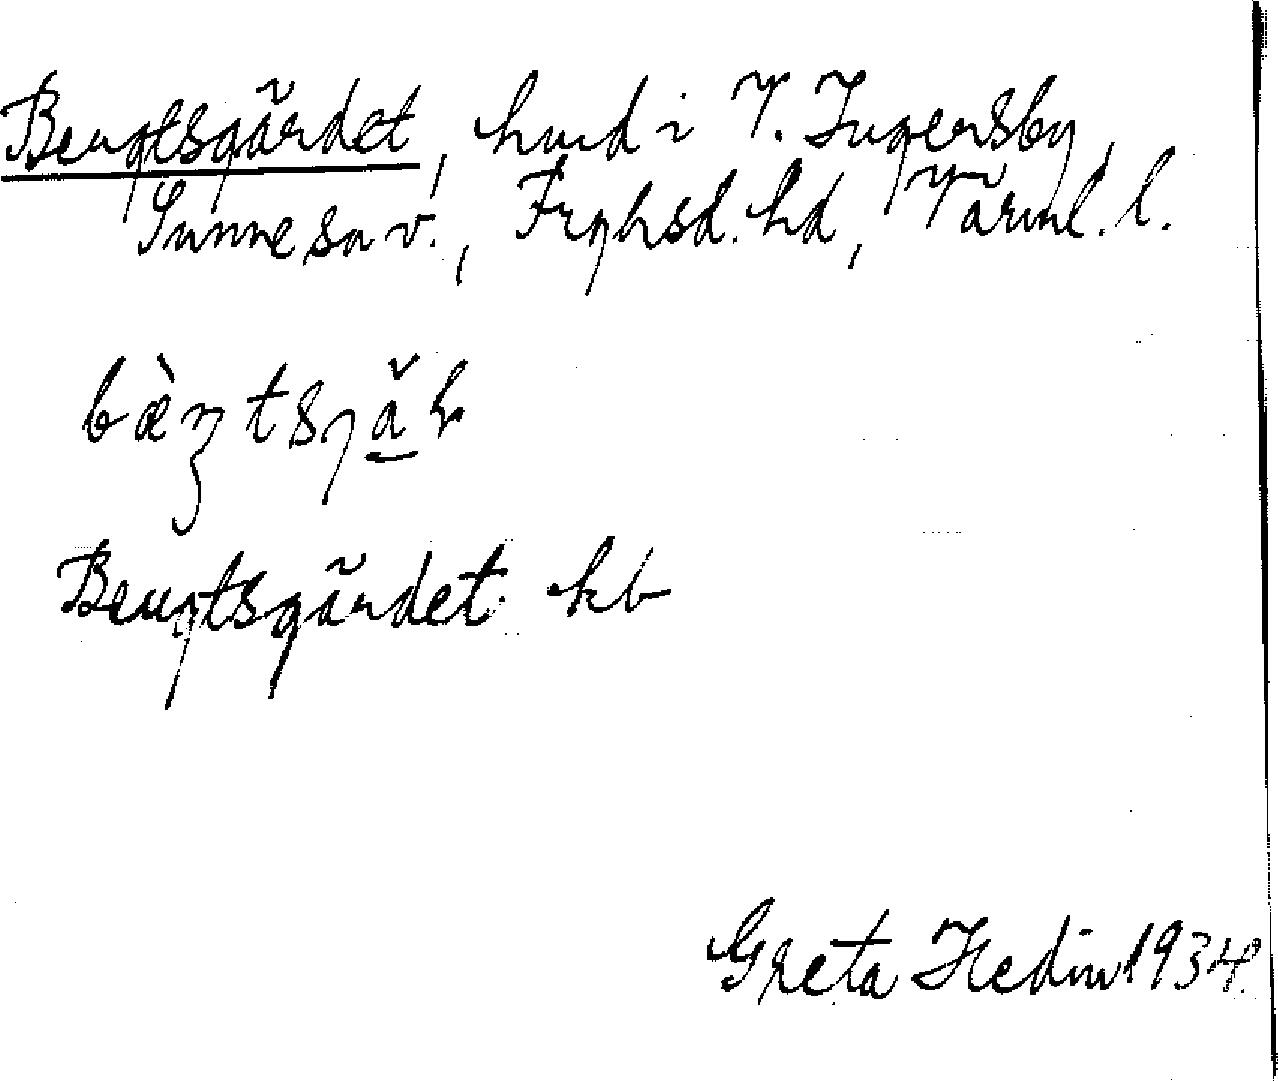 Bengtsgärdet, hmd i V. Ingersby,
Sunne sn v., Fryksd. hd, Värml. l.
Bengtsgärdet kb
Greta Hedin 1934.